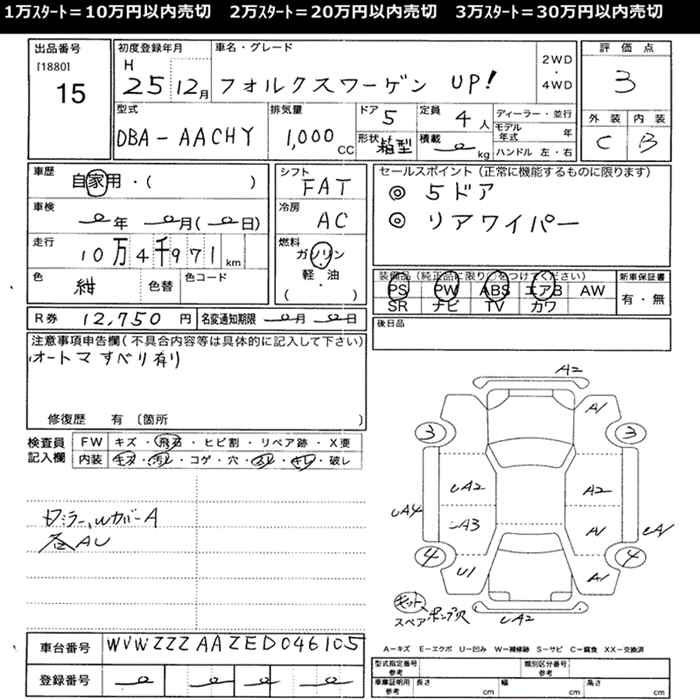 1万ｽﾀｰﾄ＝10万円以内売切　2万ｽﾀｰﾄ＝20万円以内売切　3万ｽﾀｰﾄ＝30万円以内売切
出品番号
[1880]
15
初度登録年月
H
25 12月
車名・グレード
フォルクスワーゲン UP!
2WD
・
4WD
評価点
3
型式
DBA-AACHY
排気量
1,000
CC
ドア 5
定員 4人
形状 箱型
積載 0 kg
ディーラー・並行
モデル年式 年
ハンドル 左・右
外装 内装
C B
車歴
自家用・( )
シフト
FAT
セールスポイント（正常に機能するものに限ります）
◎ 5ドア
◎ リアワイパー
車検
0年 0月(0日)
冷房
AC
走行
10万4千971 km
燃料
ガソリン
軽・油
( )
色
紺
色替
色コード
装備品（純正品に限り○をつけてください）
PS PW ABS エアB AW
SR ナビ TV カワ
新車保証書
有・無
R券 12,750 円 名変通知期限 0月 0日
後日品
注意事項申告欄（不具合内容等は具体的に記入して下さい）
オートマ すべり有り
修復歴 有〔箇所 〕
検査員
記入欄
FW キズ・飛石・ヒビ割・リペア跡・X要
内装 キズ・汚レ・コゲ・穴・スレ・キレ・破レ
カバーA
各AU
A2
A1
3 3
UA2 A2
UA4
A3 A1
4 4
U1 A1
キット
スペア
UA2
車台番号 WVWZZZAAZED046105
登録番号
A－キズ E－エクボ U－凹み W－補修跡 S－サビ C－腐食 XX－交換済
型式指定番号
参考
類別区分番号
参考
車庫証明用
参考
長さ cm
幅 cm
高さ cm